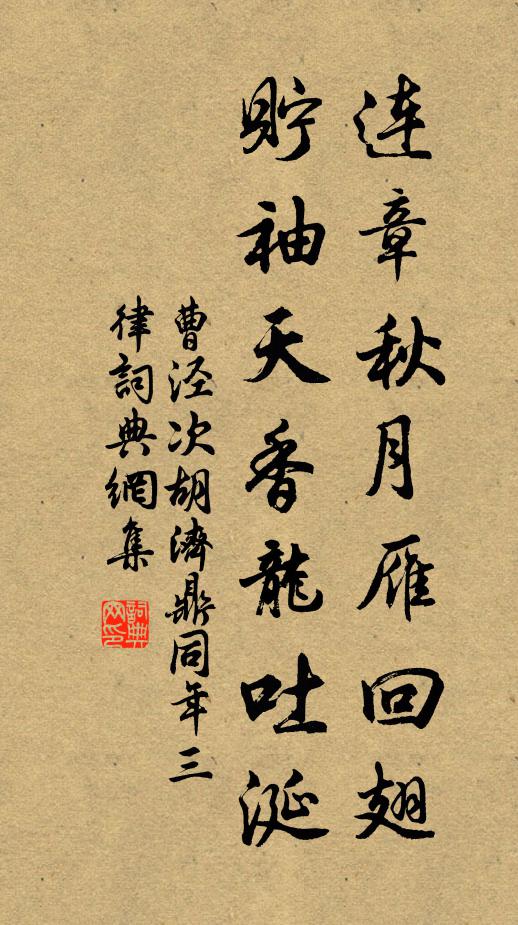 連章秋月雁回翅
貯袖天香龍吐涎
曹涇次胡濟鼎同年三
律詞典網集
詞典網印